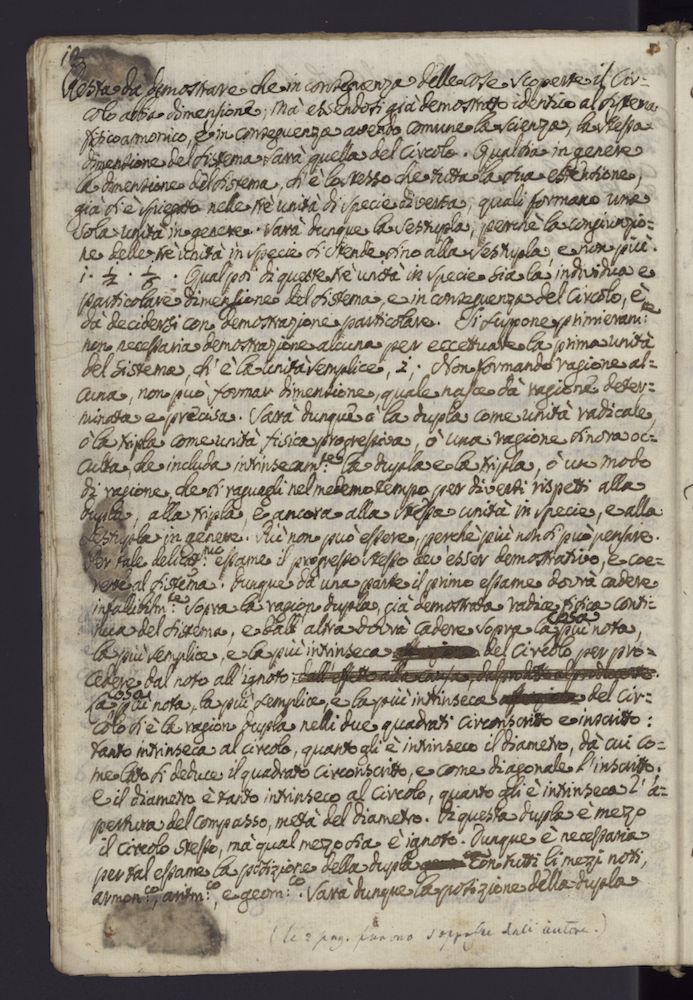 Resta da demostrare che in conseguenza delle cose scoperte il Cir-
colo abbia dimensione; mà essendosi già demostrato identico al sistema
fisicoarmonico, e in conseguenza avendo comune la scienza, la stessa
dimensione del sistema sarà quella del Circolo. Qual sia in genere
la dimensione del sistema, ch'è lo stesso che tutta la sua estensione,
già si è spiegato nelle trè unità di specie diversa, quali formano una
sola unità in genere. Sarà dunque la sestupla, perchè la congiunzio-
ne delle trè unità in specie si stende sino alla sestupla, e non più.
1. 1/2. 1/6. Qual poi di queste trè unità in specie sia la individua e
particolare dimensione del sistema, e in conseguenza del Circolo, è
da decidersi con demostrazione particolare. Si suppone primieram:te
non necessaria demostrazione alcuna per eccettuare la prima unità
del sistema, ch'è la unità semplice, 1; Non formando ragione al-
cuna, non può formar dimensione, quale nasce dà ragione deter-
minata e precisa. Sarà dunque ò la dupla come unità radicale,
ò la tripla come unità fisica progressiva, ò una ragione sinora oc-
culta, che includa intrinsecam:te la dupla e la tripla, ò un modo
di ragione, che si raguagli nel medemo tempo per diversi rispetti alla
dupla, alla tripla, e ancora alla stessa unità in specie, e alla
sestupla in genere. Più non può essere, perchè più non si può pensare.
Per tale essame il progresso stesso dev'esser demostrativo, e coe-
rente al sistema. Dunque da una parte il primo essame dovrà cadere
infallibilm:te sopra la ragion dupla, già demostrata radice fisica conti-
nua del sistema, e dall'altra dovrà cadere sopra la cosa più nota,
la più semplice, e la più intrinseca del Circolo per pro-
cedere dal noto all'ignoto: dall'effetto alla causa, dal prodotto al producente.
La cosa più nota, la più semplice, e la più intrinseca del Cir-
colo si è la ragion dupla nelli due quadrati circonscritto e inscritto:
tanto intrinseca al circolo, quanto gli è intrinseco il diametro, dà cui co-
me lato si deduce il quadrato circonscritto, e come diagonale l'inscritto.
E il diametro è tanto intrinseco al Circolo, quanto gli è intrinseca l'a-
pertura del compasso, metà del diametro. Di questa dupla è mezzo
il circolo stesso, mà qual mezzo sia è ignoto. Dunque è necessaria
per tal essame la posizione della dupla con tutti li mezzi noti,
armon:co, aritm:co, e geom:co. Sarà dunque la posizione della dupla
(le 2 pag. furono soppresse dall'autore.)